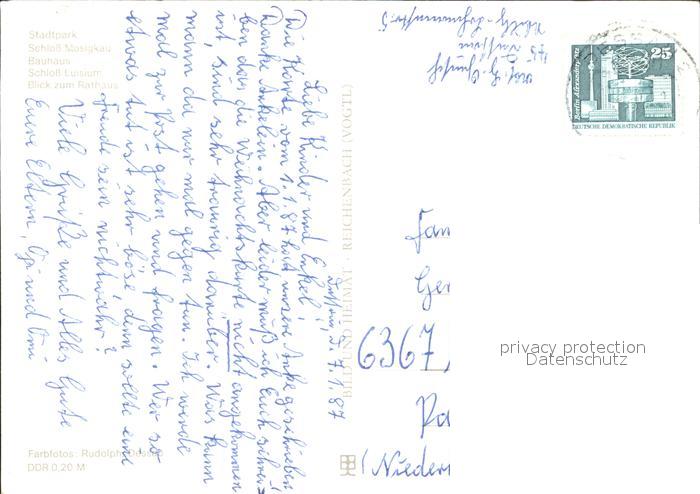 Stadtpark
Schloß Mosigkau
Bauhaus
Schloß Luisium
Blick zum Rathaus
7.1.87
Liebe Kinder und Enkel!
Die Karte vom 1.1.87 hat unsere Anke geschrieben
Danke Ankelein. Aber leider muß ich Euch schrei=
ben das die Weihnachtskarte nicht angekommen
ist, sind sehr traurig darüber. Was kann
man da nur mal gegen tun. Ich werde
mal zur Post gehen und fragen. Wer so
etwas tut ist sehr böse, denn sollte eine
Freude sein nichtwahr?
Viele Grüße und Alles Gute
Eure Eltern, Opi und Omi
Farbfotos: Rudolph, Dessau
DDR 0,20 M
BILD UND HEIMAT · REICHENBACH (VOGTL)
Berlin, Alexanderplatz
25
DEUTSCHE DEMOKRATISCHE REPUBLIK
Fam
Ger
6367,
(Nieder
privacy protection
Datenschutz